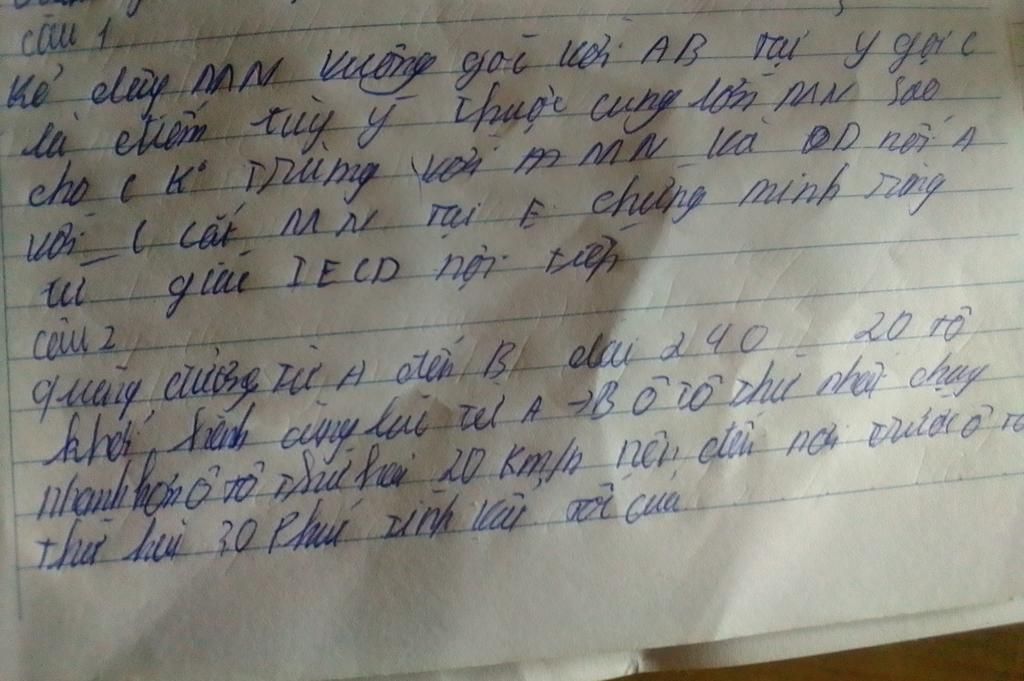 câu 1
Kẻ dây MN vuông góc với AB tại y gọi c
là điểm tùy ý thuộc cung lớn MN sao
cho C K° Trùng với MN và D nối A
với C cắt MN tại E chứng minh rằng
tứ giác IECD nội tiếp
câu 2
quãng đường từ A đến B dài 240 20 tô
khởi hành cùng lúc từ A → B ô tô thứ nhất chạy
nhanh hơn ô tô thứ hai 20 Km/h nên đến nơi trước ô tô
thứ hai 30 Phút Tính vận tốc của